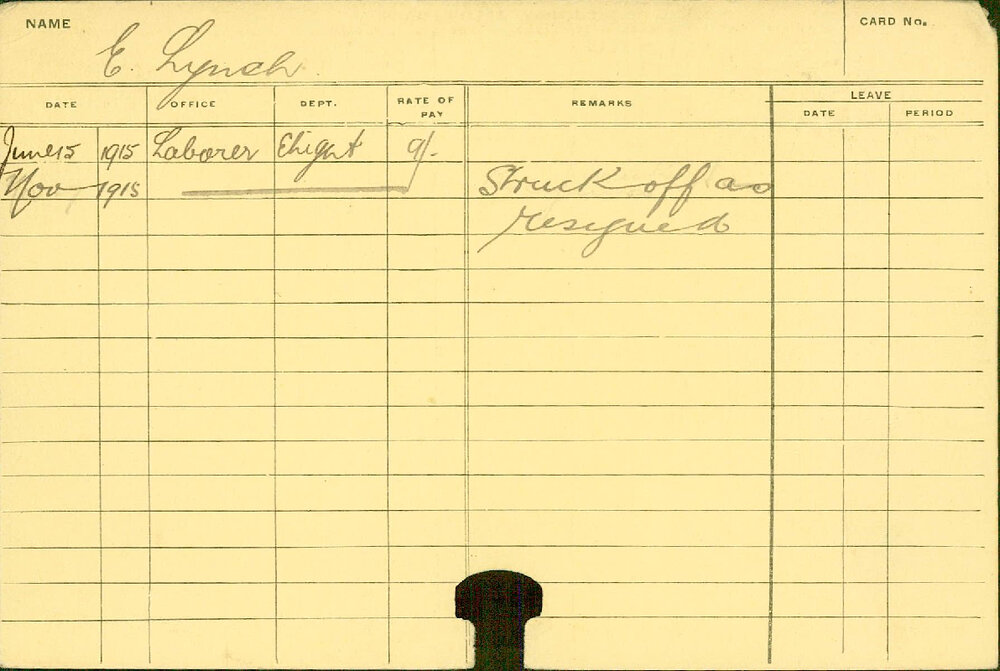 NAME
CARD No.
E. Lynch
DATE OFFICE DEPT. RATE OF PAY REMARKS LEAVE
DATE PERIOD
June 15 1915 Laborer Elight 9/-
Nov 1915 Struck off as
resigned